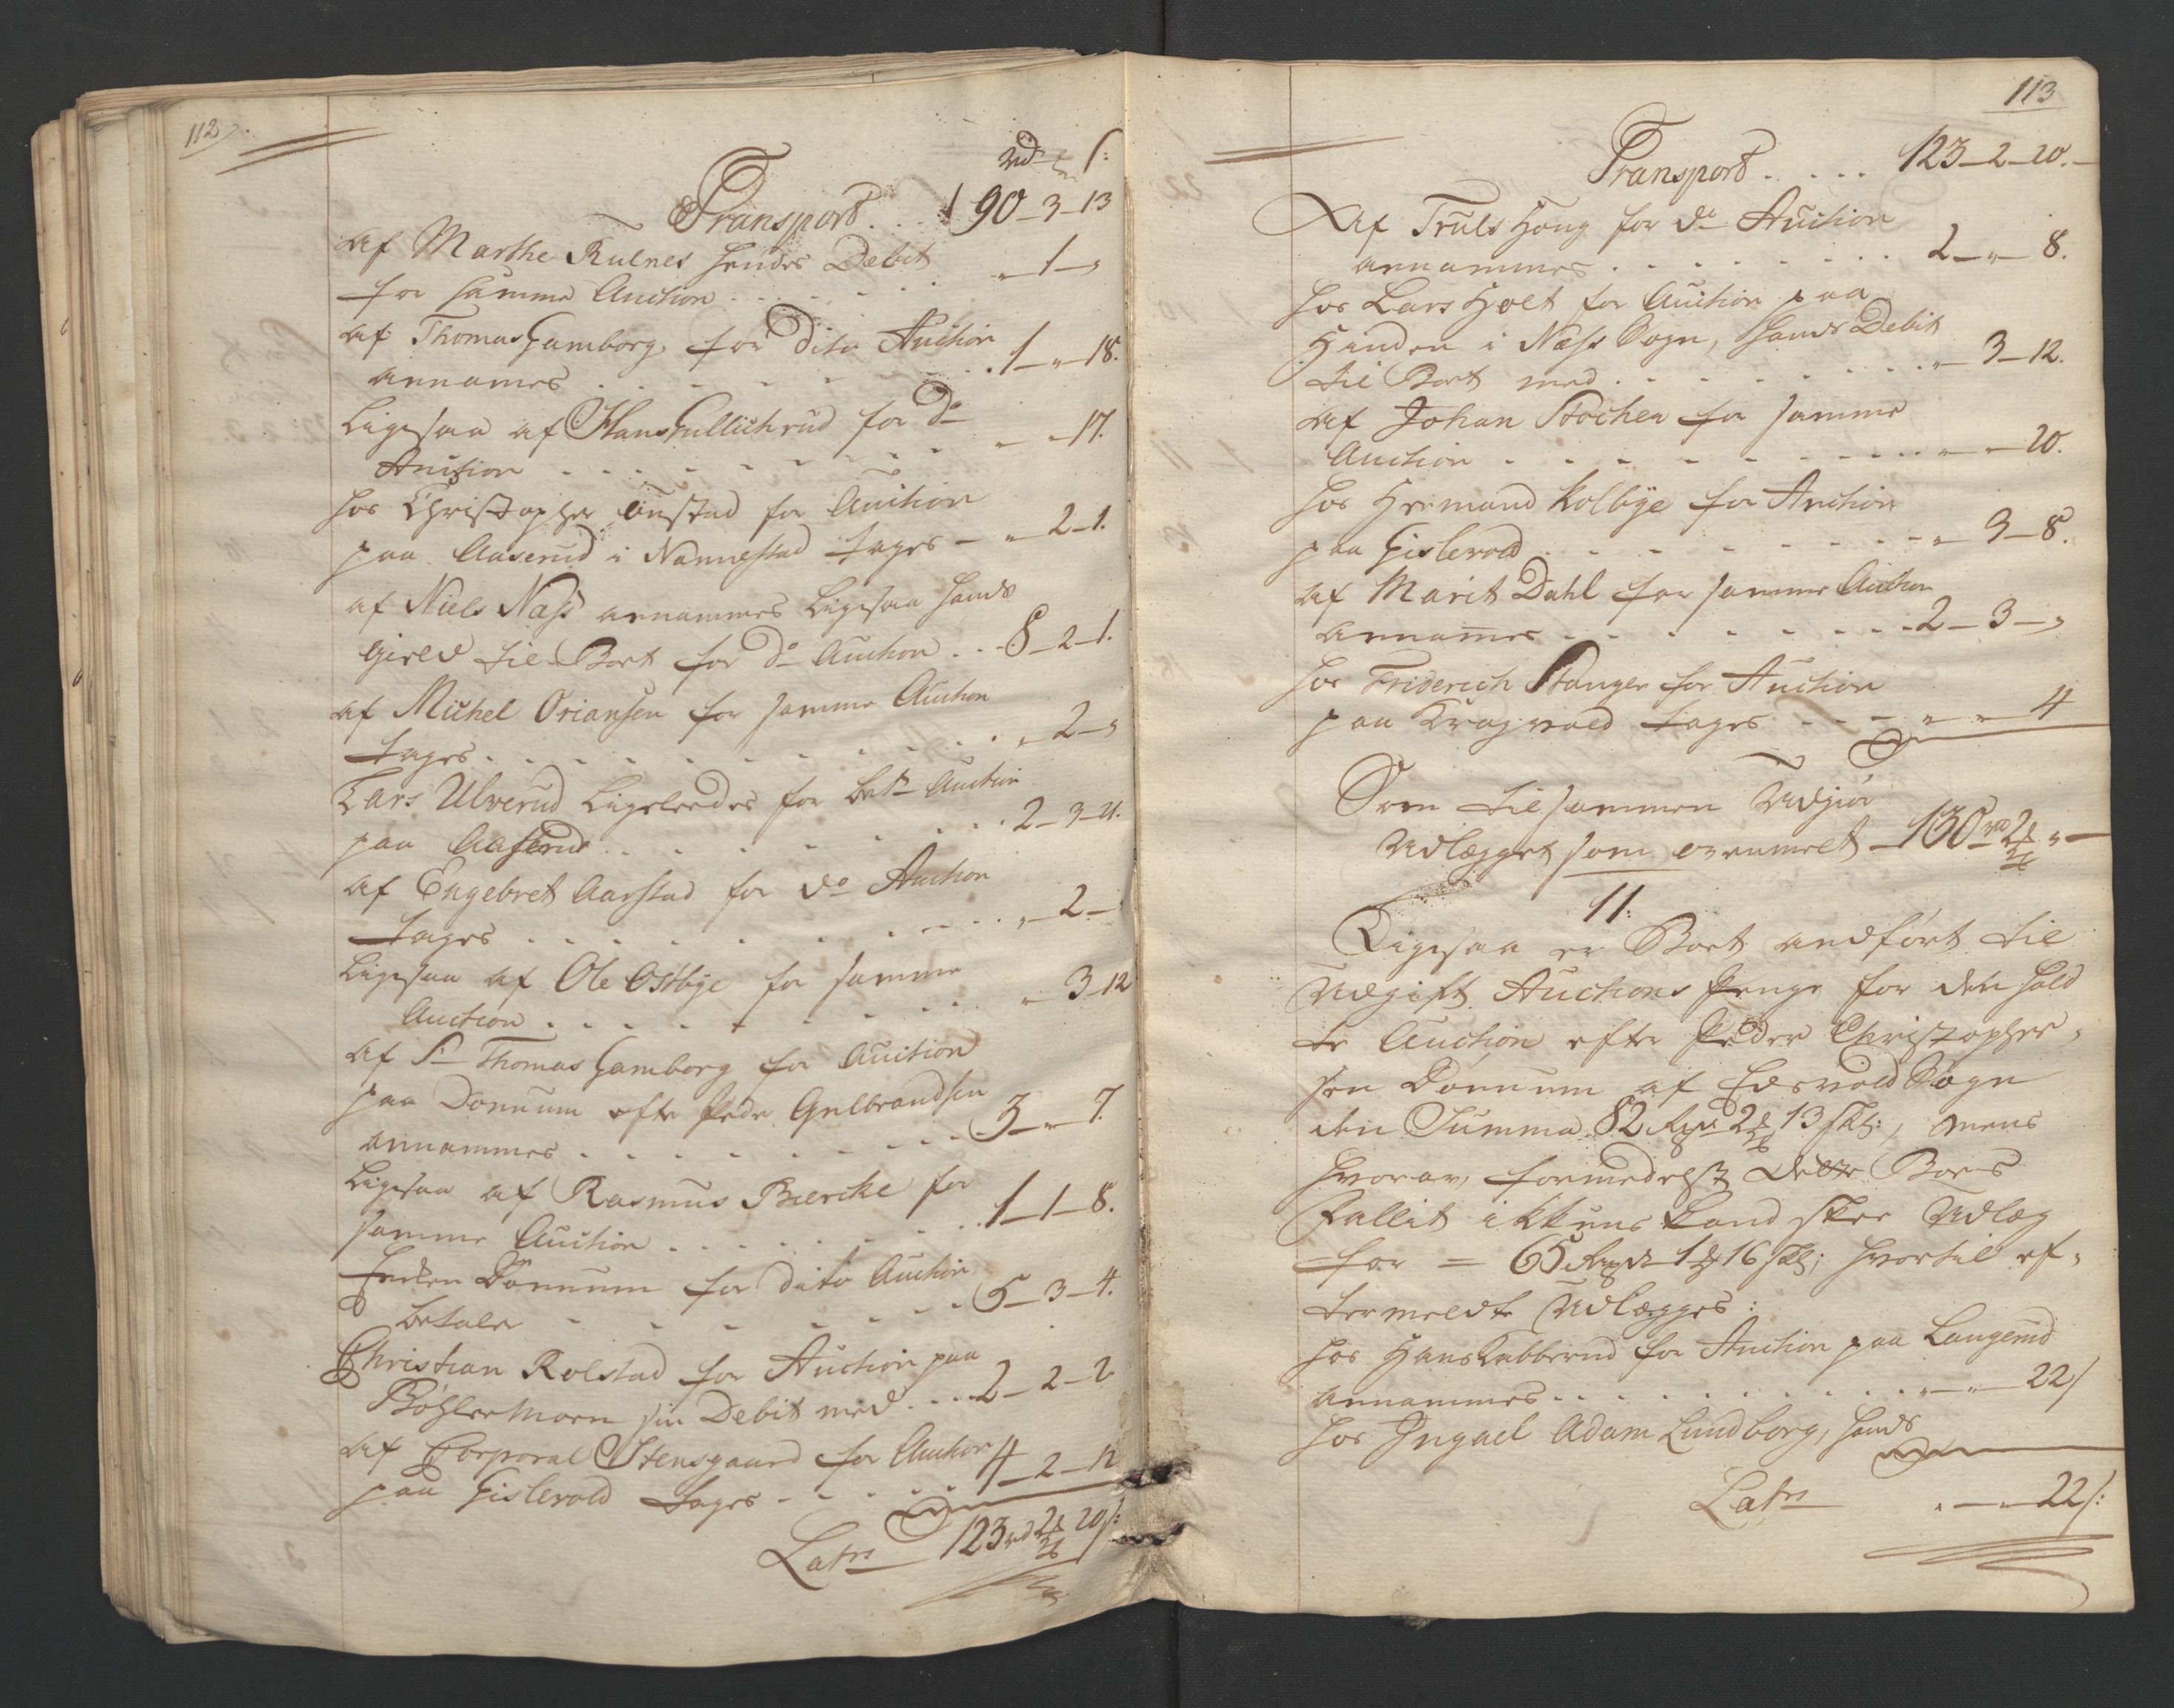 112
rd ß:
Transport . . . 90 - 3 - 13
af Marthe Rulnes hendes Debit
for samme Auction . . . . . „ - 1 - „
af Thomas Gamborg, for dito Auction
annames . . . . . . . 1 - „ - 18.
Ligesaa af Hans Gullichrud for do
Auction . . . . . . . . „ - „ - 17.
hos Christopher Onstad for Auction
paa Aaserud i Nannestad tages - „ - 2 - 1.
af Niels Næss annammes Ligesaa hands
gield til Boet for do Auction . . 8 - 2 - 1.
af Michel Oriansen for samme Auction
tages . . . . . . . . . „ - 2 - „
Lars Ulverud Ligeledes for bete Auction
paa Aaserud . . . . . . 2 - 3 - 21.
af Engebret Aarstad for do Auction
tages . . . . . . . . . „ - 2 -
Ligesaa af Ole Ostbye for samme
Auction . . . . . . . . „ - 3 - 12
af Sr Thomas Gamborg for Auction
paa Donnum efter Peder Gulbrandsen
annammes . . . . . . . 3 - „ - 7.
Ligesaa af Rasmus Biercke for
samme Auction . . . . . . 1 - 1 - 8.
Enken Donnum for dito Auction
betaler . . . . . . . 5 - 3 - 4.
Christian Rolstad for Auction paa
Bøhlermoen sin Debit med . . . 2 - 2 - 2
af Corporal Stensgaard for Auction
paa Gislevold tages - . . . . 4 - 2 - 12
Latus 123 rd 2 20 ß:
113
Transport . . . . 123 - 2 - 20.
Af Truls Houg for do Auction
annammes . . . . . . . 2 - „ - 8.
hos Lars Holt for Auction paa
Henden i Næss Sogn, hands Debit
til Boet med . . . . . . . . „ - 3 - 12.
af Johan Stocher for samme
Auction . . . . . . . . . „ - „ - 20.
hos Hermand Kolbye for Auction
paa Gislevold . . . . . . . „ - 3 - 8.
af Marit Dahl for samme Auction
annames . . . . . . . . 2 - 3 - „
hos Friderich Stanger for Auction
paa Kragvold tages . . . „ - „ - 4
Som tilsammen Udgiør
Udlægget som ovenmelt - 130 rd 2 „ -
11:
Ligesaa er Boet andført til
Udgift Auctions Penge for den hold
te Auction efter Peder Christopher-
sen Donnum af Edsvold Sogn
den Summa 82 Rdr 2 13 sk:, mens
hvorav, formedelst dette Boes
Fallit ikkuns kand skee Udlæg
for = 65 Rdr 1 16 sk; hvortil ef-
termeldte Udlægges:
hos Hans Labberud for Auction paa Langerud
annammes . . . . . . . . . „ - „ - 22 ß
hos Ingael Adam Lundborg, hands
Latus „ - „ - 22 ß: